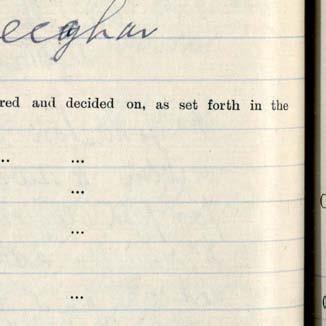 red and decided on, as set forth in the
.. ...
...
...
...